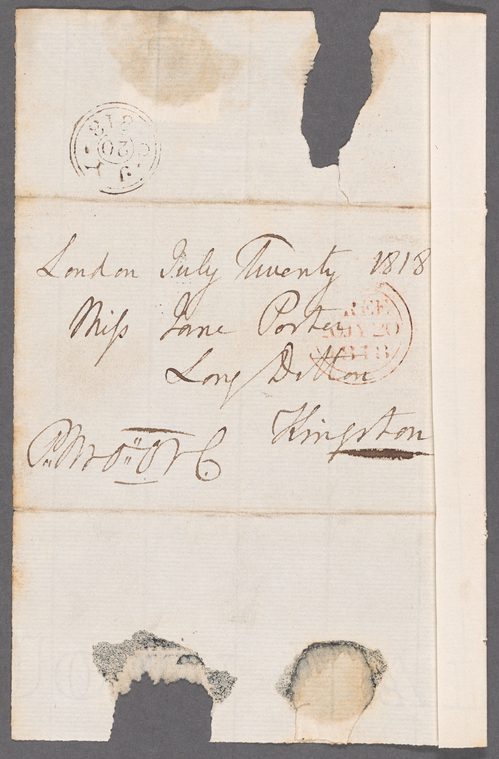 London July Twenty 1818
Miss Jane Porter
Long Ditton
Kingston
FREE
20 JY 20
1818